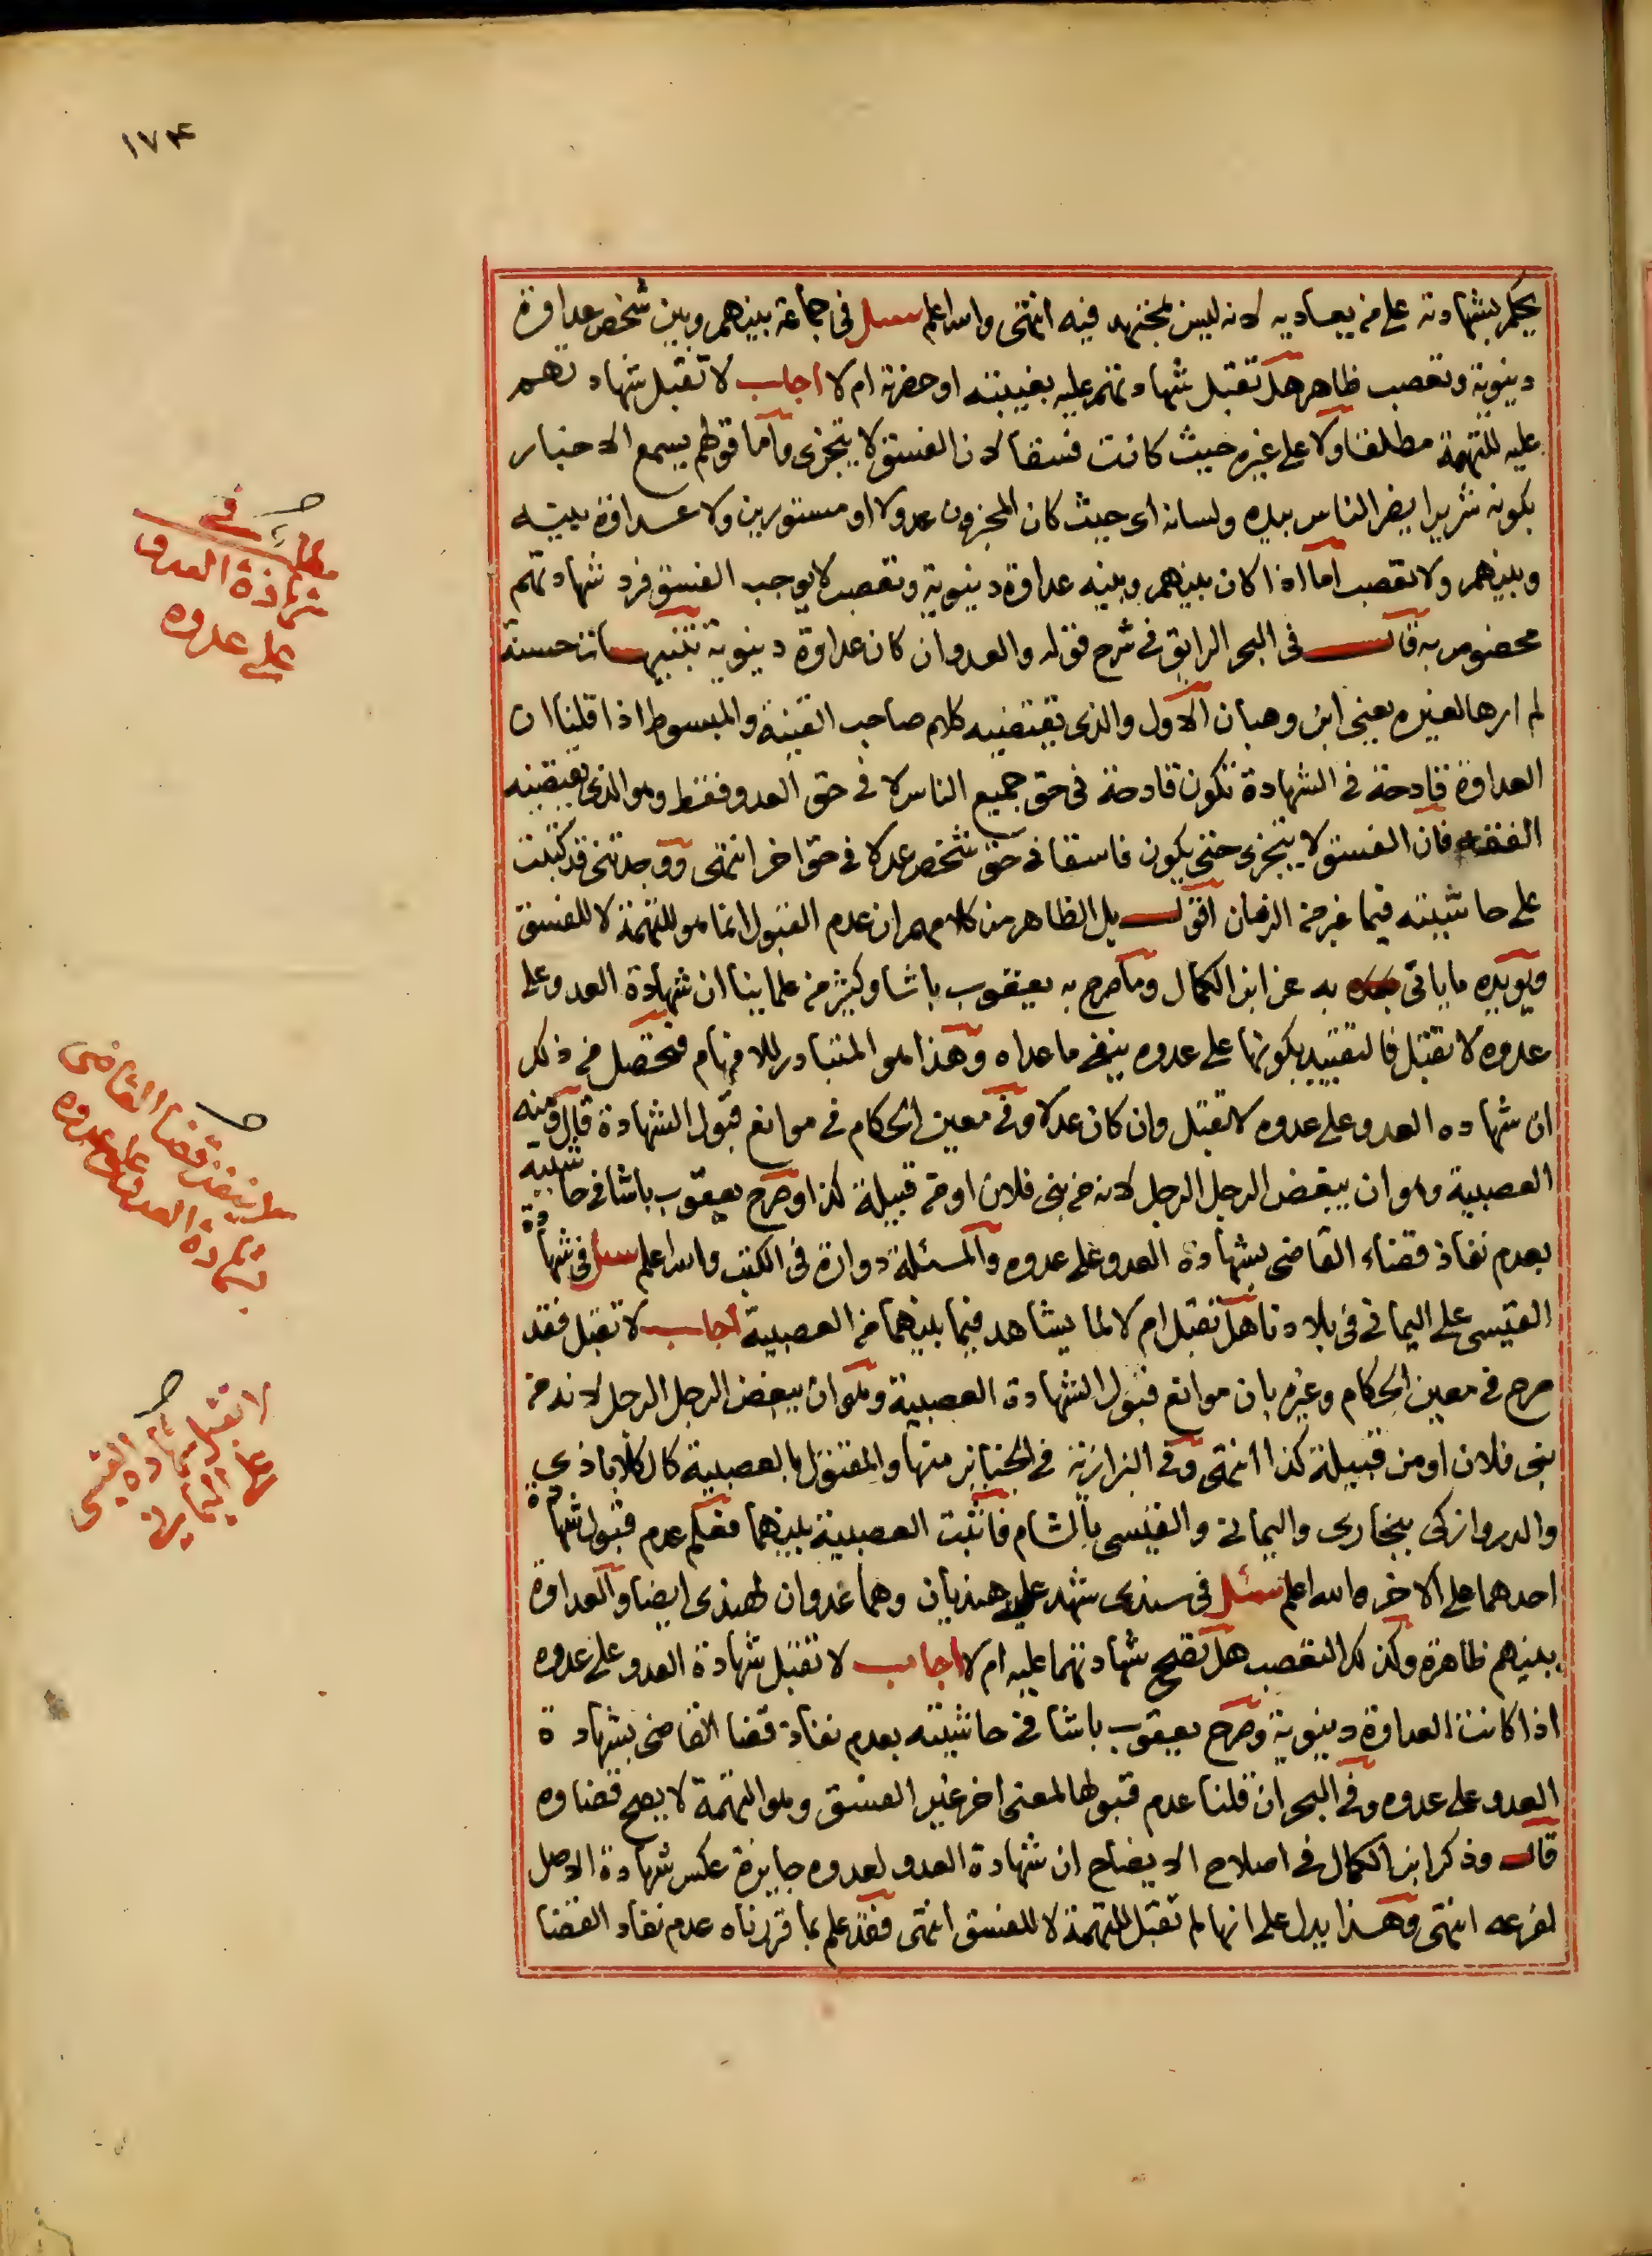 ١٧٤
يحكم بشهادته على من يعاديه لانه ليس بمجتهد فيه انتهى والله اعلم سئل في جماعة بينهم وبين شخص عداوة
دينوية وتعصب ظاهر هل تقبل شهادتهم عليه بغيبته او حضرته ام لا اجاب لا تقبل شهادتهم
عليه للتهمة مطلقا ولا على غيره حيث كانت فسقا لان الفسق لا يتجزى واما قولهم يسمع الاخبار
بكونه شريرا يضر الناس بيده ولسانه اى حيث كان المخبرون عدولا او مستورين ولا عداوة بينه
وبينهم ولا تعصب اما اذا كان بينهم وبينه عداوة دينوية وتعصب لا يوجب الفسق فرد شهادتهم
مخصوص به قال في البحر الرايق في شرح قوله والعدو ان كان عداوة دينوية تنبيهات حسنة
لم ارها لغيره يعني ابن وهبان الاول والذى يقتضيه كلام صاحب القنية والمبسوط اذا قلنا ان
العداوة قادحة في الشهادة تكون قادحة في حق جميع الناس لا في حق العدو فقط وهو الذى يقتضيه
الفقه فان الفسق لا يتجزى حتى يكون فاسقا في حق شخص عدلا في حق اخر انتهى ووجدتني قد كتبت
على حاشيته فيما غبر من الزمان اقول بل الظاهر من كلامهم ان عدم القبول انما هو للتهمة لا للفسق
ويويده ما ياتى به عن ابن الكمال وما صرح به يعقوب باشا وكثير من علماينا ان شهادة العدو على
عدوه لا تقبل فالتقييد بكونها على عدوه ينفى ما عداه وهذا هو المتبادر للافهام فتحصل من ذلك
ان شهاده العدو على عدوه لا تقبل وان كان عدلا وفي معين الحكام في موانع قبول الشهادة قال ومنه
العصبية وهو ان يبغض الرجل الرجل لانه من بنى فلان او من قبيلة كذا وصرح يعقوب باشا في حاشيته
بعدم نفاذ قضاء القاضى بشهادة العدو على عدوه والمسئلة دوارة في الكتب والله اعلم سئل في شهادة
القيسى على اليمانى في بلادنا هل تقبل ام لا لما يشاهد فيما بينهما من العصبية اجاب لا تقبل فقد
صرح في معين الحكام وغيره بان موانع قبول الشهادة العصبية وهو ان يبغض الرجل الرجل لانه من
بنى فلان او من قبيلة كذا انتهى وفي البزازية في الجنايز منها والمقتول بالعصبية كالكلاباذى
والدروازكى ببخارى واليمانى والقيسى بالشام فاثبت العصبية بينهما فعلم عدم قبول شهادة
احدهما على الاخر والله اعلم سئل في سندى شهد عليه هنديان وهما عدوان لهندى ايضا والعداوة
بينهم ظاهرة وكذلك التعصب هل تصح شهادتهما عليه ام لا اجاب لا تقبل شهادة العدو على عدوه
اذا كانت العداوة دينوية وصرح يعقوب باشا في حاشيته بعدم نفاذ قضا القاضى بشهادة
العدو على عدوه وفي البحر ان قلنا عدم قبولها لمعنى اخر غير الفسق وهو التهمة لا يصح قضاوه
قال وذكر ابن الكمال في اصلاح الايضاح ان شهادة العدو لعدوه جايزة عكس شهادة الاصل
لفرعه انتهى وهذا يدل على انها لم تقبل للتهمة لا للفسق انتهى فقد علم بما قررناه عدم نفاد القضا
مطلب في
شهادة العدو
على عدوه
لا ينفذ قضا القاضى
بشهادة العدو على عدوه
لا تقبل شهادة القيسى
على اليمانى